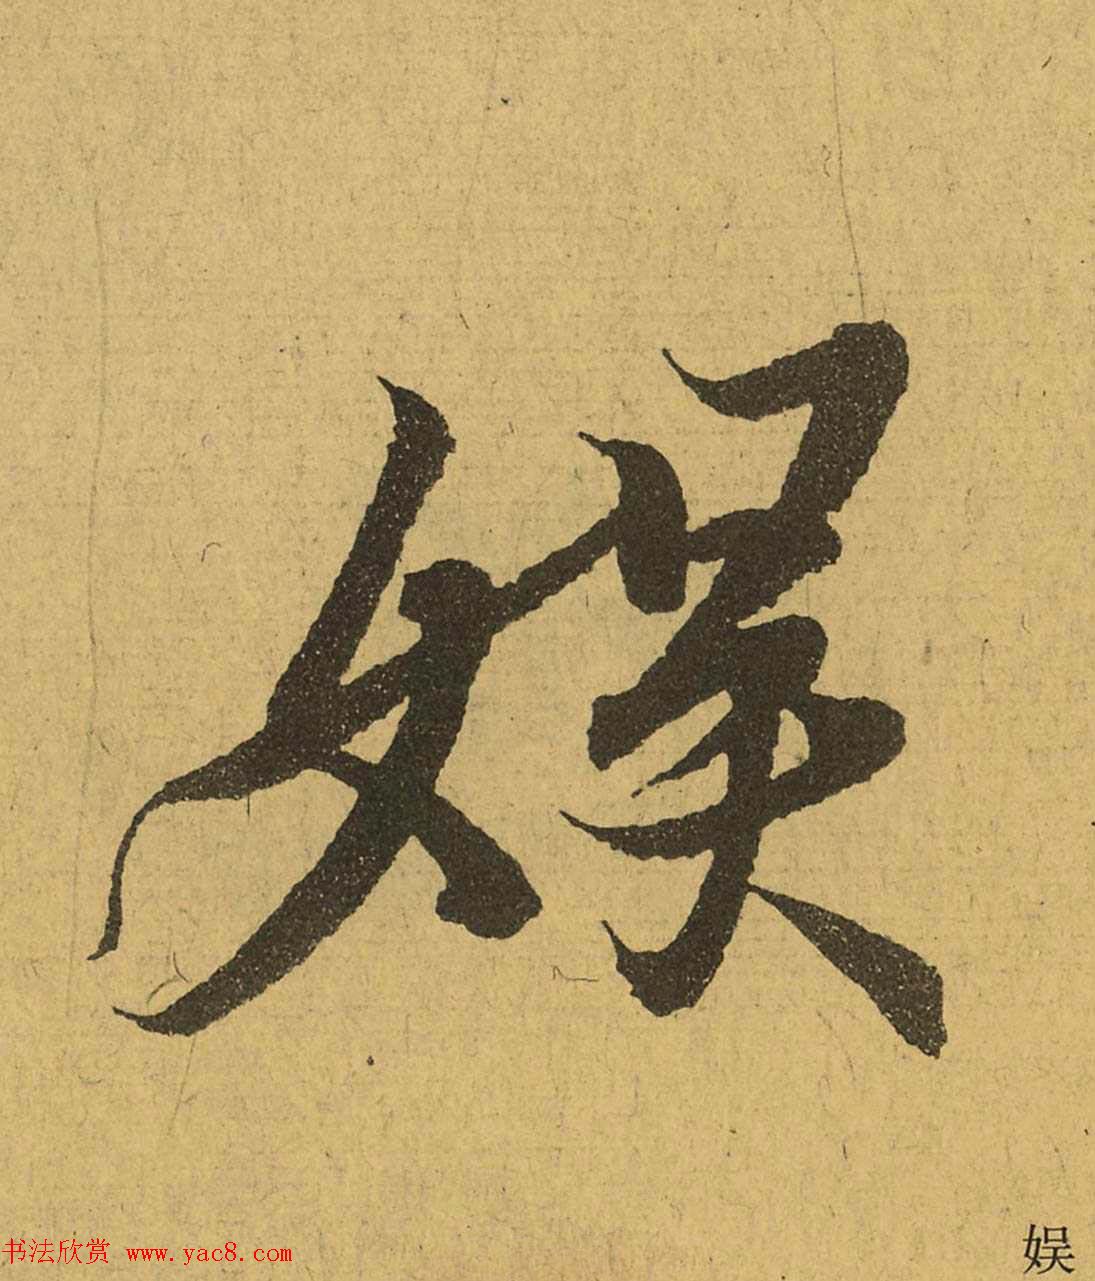 娱
书法欣赏 www.yac8.com
娱